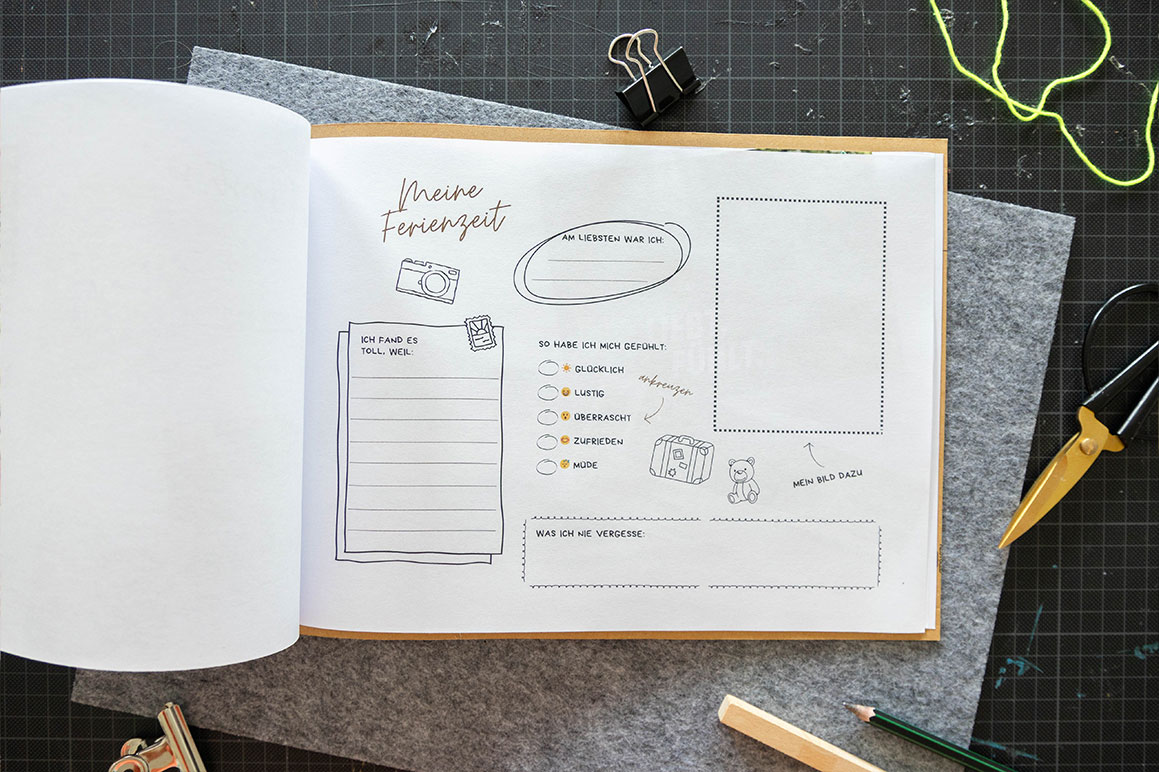 Meine
Ferienzeit
AM LIEBSTEN WAR ICH:
ICH FAND ES
TOLL, WEIL:
SO HABE ICH MICH GEFÜHLT:
GLÜCKLICH
LUSTIG
ÜBERRASCHT
ZUFRIEDEN
MÜDE
ankreuzen
MEIN BILD DAZU
WAS ICH NIE VERGESSE: